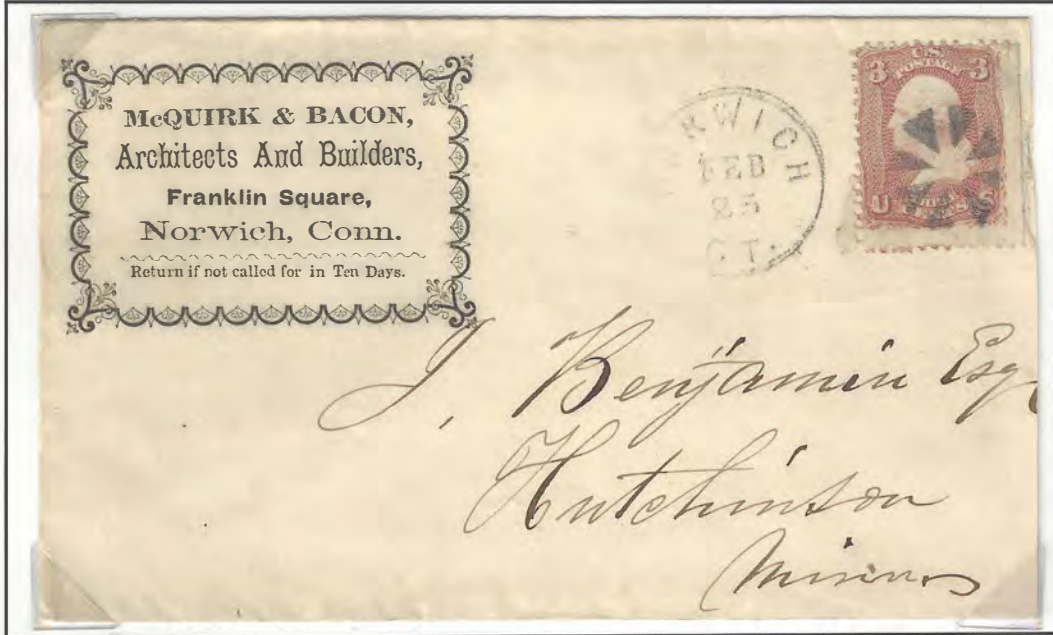 McQUIRK & BACON,
Architects And Builders,
Franklin Square,
Norwich, Conn.
Return if not called for in Ten Days.
RWICH
FEB
CT.
U.S.
POSTAGE
3 3
U
J. Benjamin Esq
Hutchinson